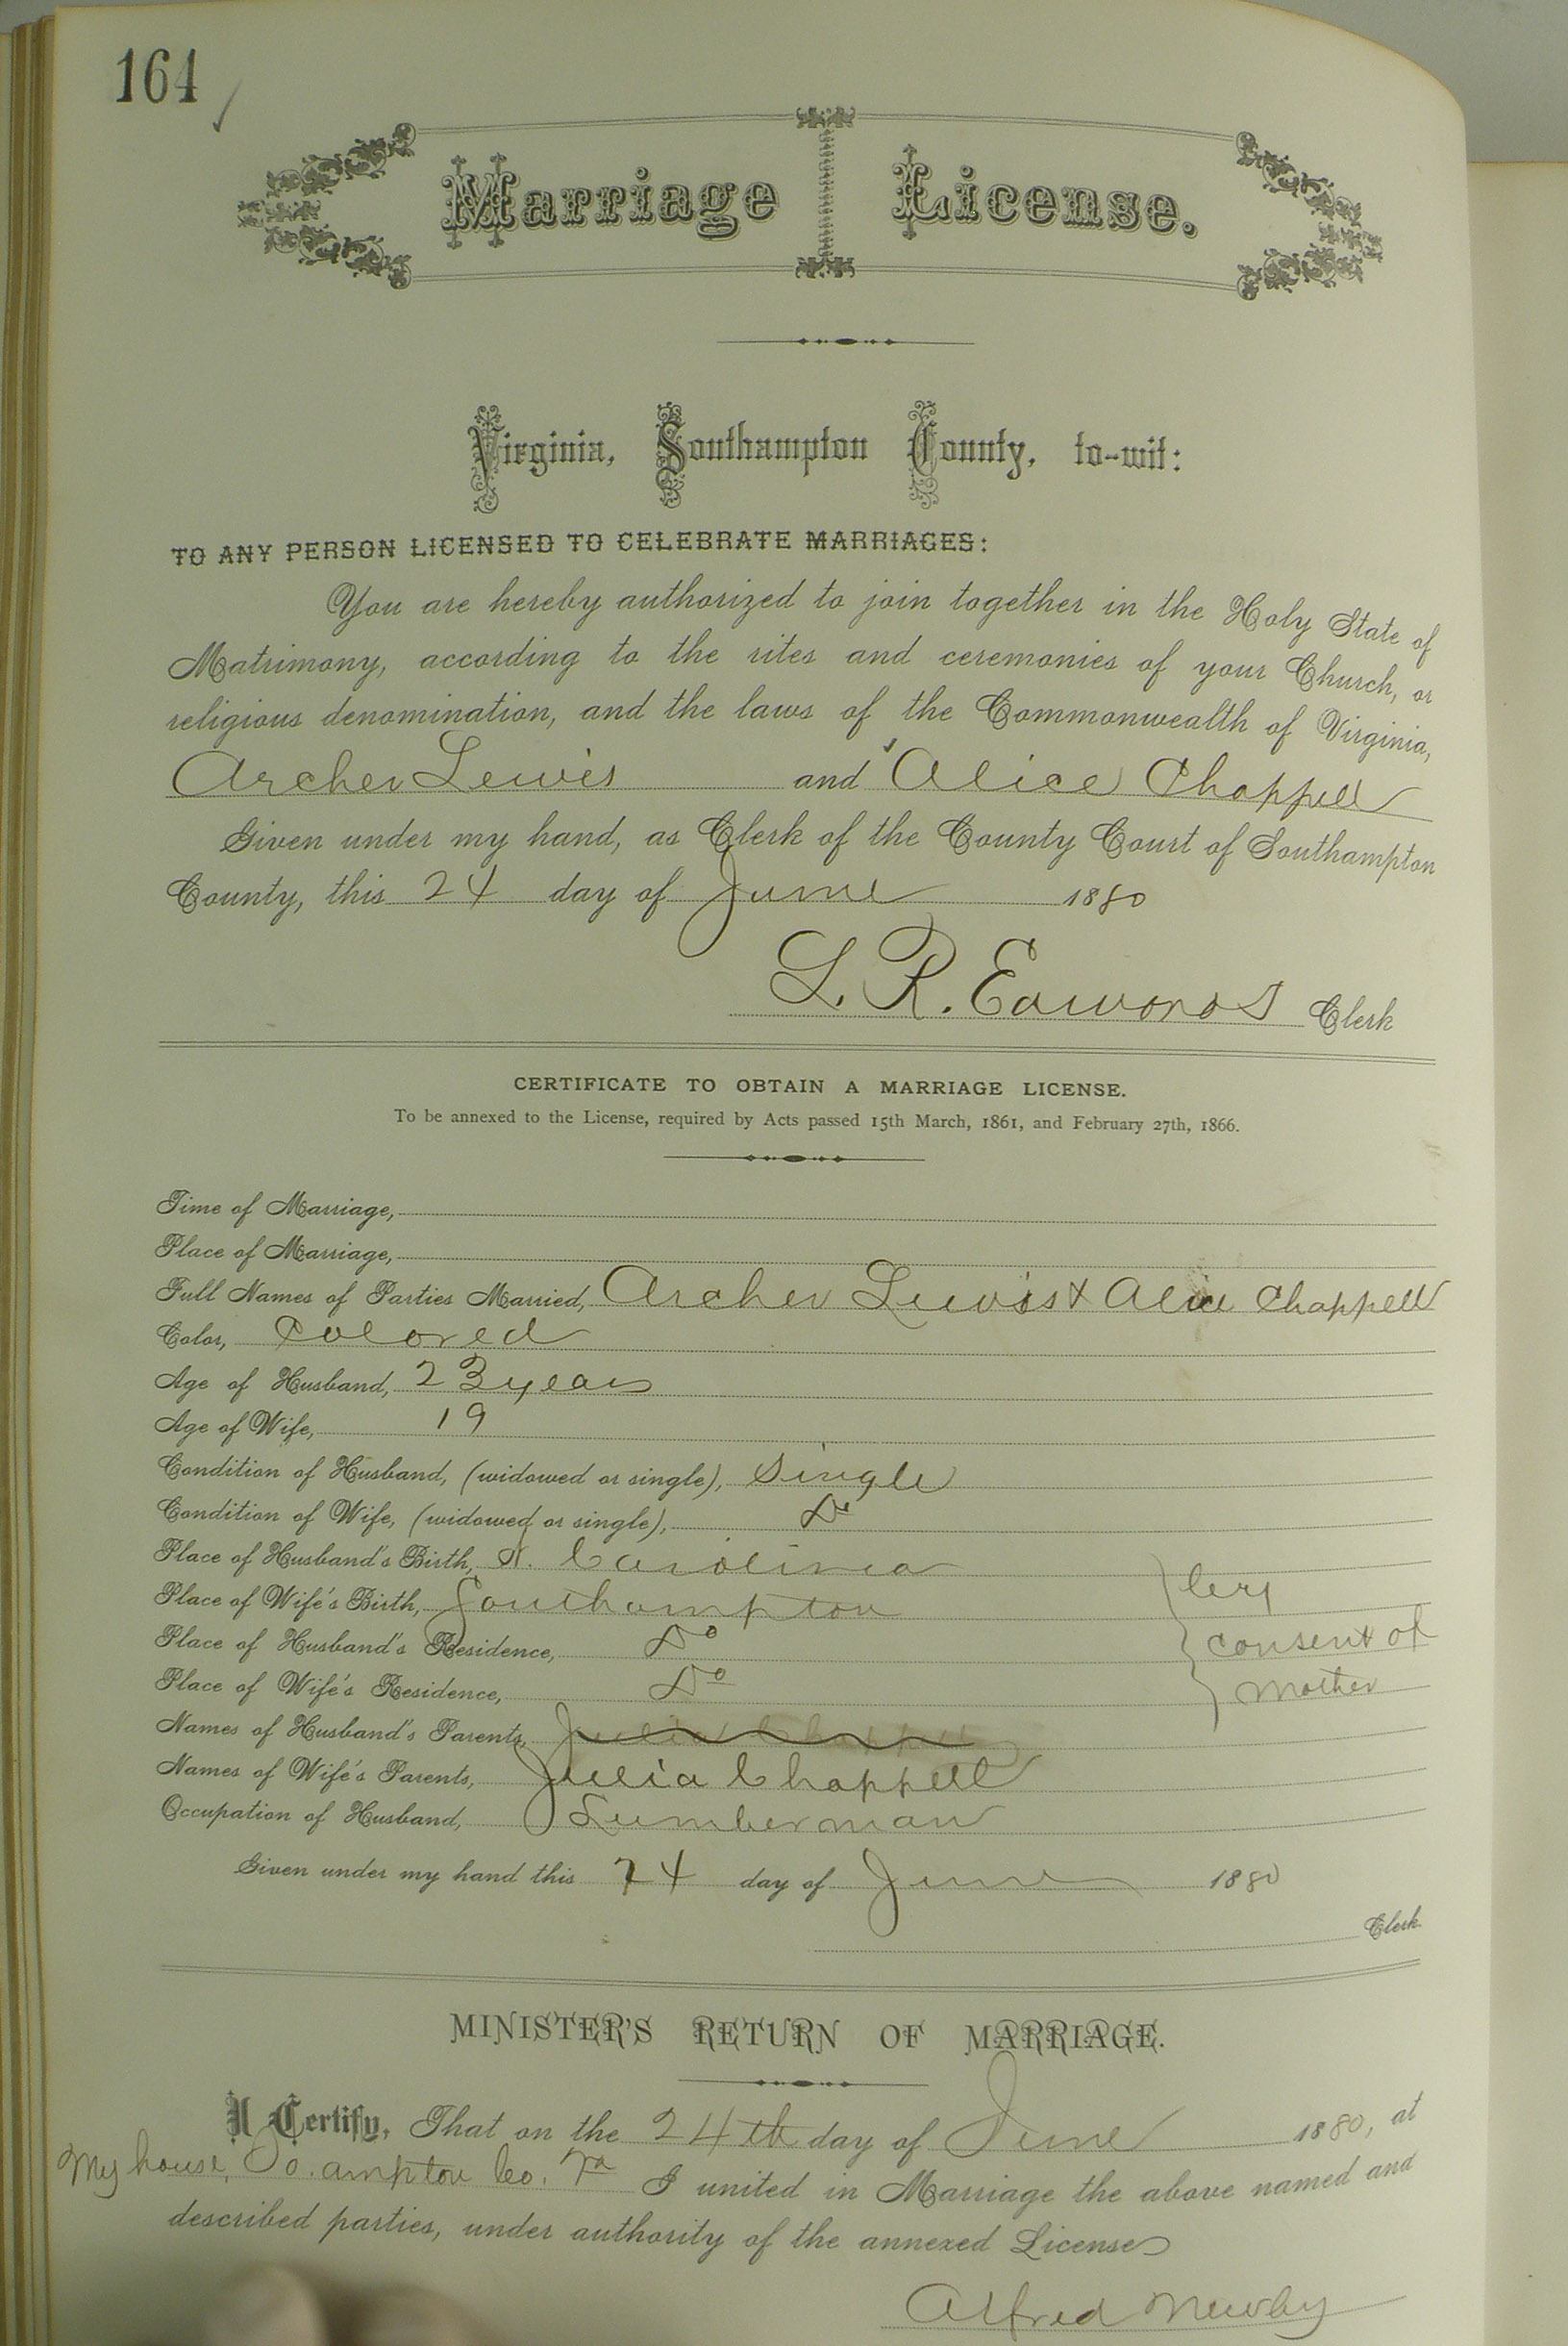 164
Marriage License.
Virginia, Southampton County, to-wit:
TO ANY PERSON LICENSED TO CELEBRATE MARRIAGES:
You are hereby authorized to join together in the Holy State of
Matrimony, according to the rites and ceremonies of your Church, or
religious denomination, and the laws of the Commonwealth of Virginia,
Archer Lewis and Alice Chappell
Given under my hand, as Clerk of the County Court of Southampton
County, this 24 day of June 1880
L. R. Edwards Clerk
CERTIFICATE TO OBTAIN A MARRIAGE LICENSE.
To be annexed to the License, required by Acts passed 15th March, 1861, and February 27th, 1866.
Time of Marriage,
Place of Marriage,
Full Names of Parties Married, Archer Lewis & Alice Chappell
Color, Colored
Age of Husband, 23 years
Age of Wife, 19
Condition of Husband, (widowed or single), Single
Condition of Wife, (widowed or single), Do
Place of Husband's Birth, N. Carolina
Place of Wife's Birth, Southampton
Place of Husband's Residence, Do
Place of Wife's Residence, Do
By
consent of
Mother
Names of Husband's Parents, Julia Chappell
Names of Wife's Parents, Julia Chappell
Occupation of Husband, Lumberman
Given under my hand this 24 day of June 1880
Clerk
MINISTER'S RETURN OF MARRIAGE.
I Certify, That on the 24th day of June 1880, at
My house, So.ampton Co. Va I united in Marriage the above named and
described parties, under authority of the annexed License
Alfred Newby